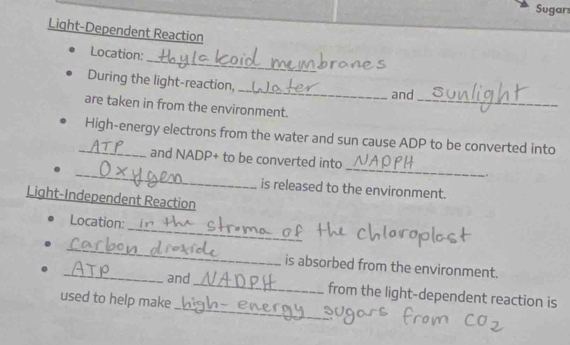 Sugars
Light-Dependent Reaction
• Location: thylakoid membranes
• During the light-reaction, Water and sunlight
are taken in from the environment.
• High-energy electrons from the water and sun cause ADP to be converted into
ATP and NADP+ to be converted into NADPH.
• Oxygen is released to the environment.
Light-Independent Reaction
• Location: in the stroma of the chloroplast
• carbon dioxide is absorbed from the environment.
• ATP and NADPH from the light-dependent reaction is
used to help make high-energy sugars from CO2